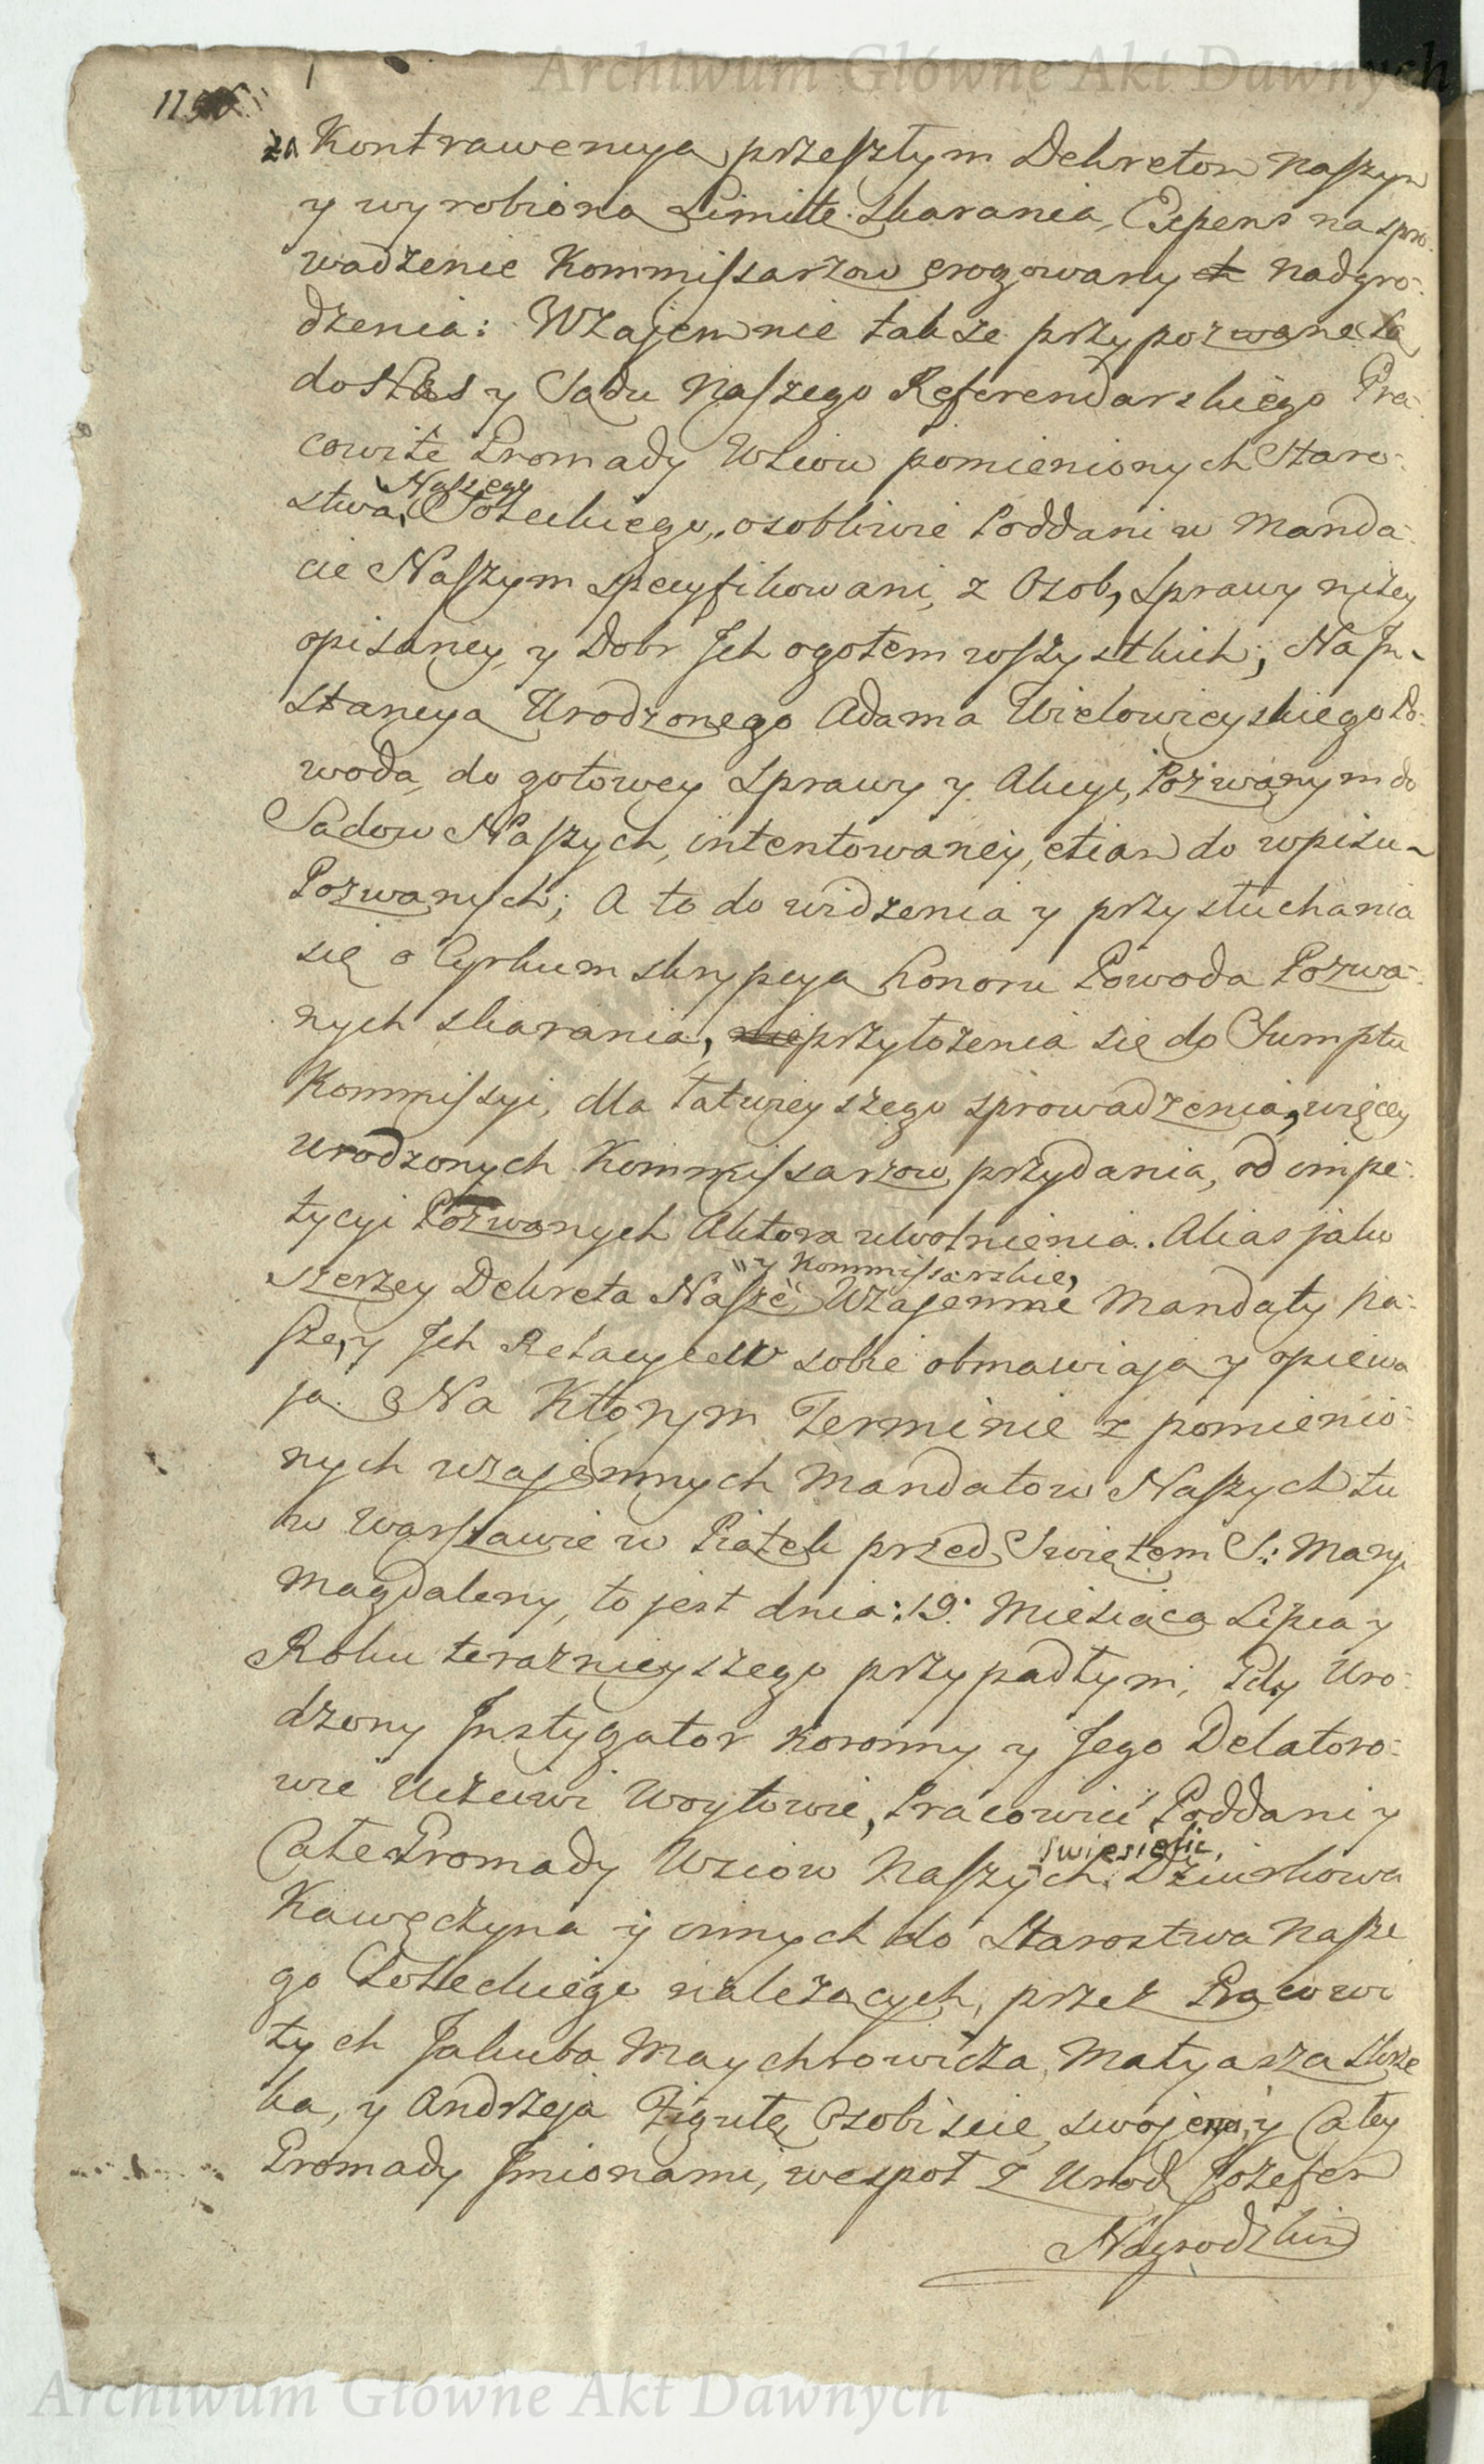 Archiwum Główne Akt Dawnych
za Kontrawencyą przeszłym Dekretom Naszym
y wyrobioną Limitę skarania, Expens na spro-
wadzenie Kommissarzow erogowany nadgro-
dzenia: Wzajemnie także przypozwane są
do Nas y Sądu Naszego Referendarskiego Pra-
cowite Gromady Wsiow pomienionych Staro-
Naszego
stwa Soleckiego, osobliwie Poddani w Manda-
cie Naszym specyfikowani, z Osob, sprawy niżey
opisaney, y Dobr Ich ogołem wszystkich; Na In-
stancyą Urodzonego Adama Wielowieyskiego Po-
woda, do gotowey sprawy y Akcyi, Pozwanym do
Sadow Naszych, intentowaney, etiam do wpisu
Pozwanych; A to do widzenia y przysłuchania
się o Cyrkumskrypcyą honoru Powoda Pozwa-
nych skarania, przyłożenia się do Sumptu
Kommissyi, dla łatwieyszego sprowadzenia, więcey
Urodzonych Kommissarzow przydania, od impe-
tycyi Pozwanych Aktora uwolnienia. Alias jako
y Kommissarskie,
szerzey Dekreta Nasze, Wzajemne Mandaty Na-
sze, y Ich Relacye w sobie obmawiają y opiewa
ją. Na Ktorym Terminie z pomienio-
nych wzajemnych Mandatow Naszych tu
w Warszawie w Piątek przed Swiętem S: Maryi
Magdaleny, to jest dnia: 19: Miesiąca Lipca y
Roku teraznieyszego przypadłym, Gdy Uro-
dzony Instygator Koronny y Jego Delatoro-
wie Uczciwi Woytowie, Pracowici Poddani y
Swiesielic,
Całe Gromady Wsiow Naszych Dziurkowa
Kawęczyna y innych do Starostwa Nasze
go Soleckiego należących, przez Pracowi
tych Jakuba Maychrowicza, Matyasza Skrze
ka, y Andrzeja Zigutę Osobiscie, swojem, y Całey
Gromady Imionami, wespoł z Urod Jozefem
Nagrodzkim
Archiwum Główne Akt Dawnych